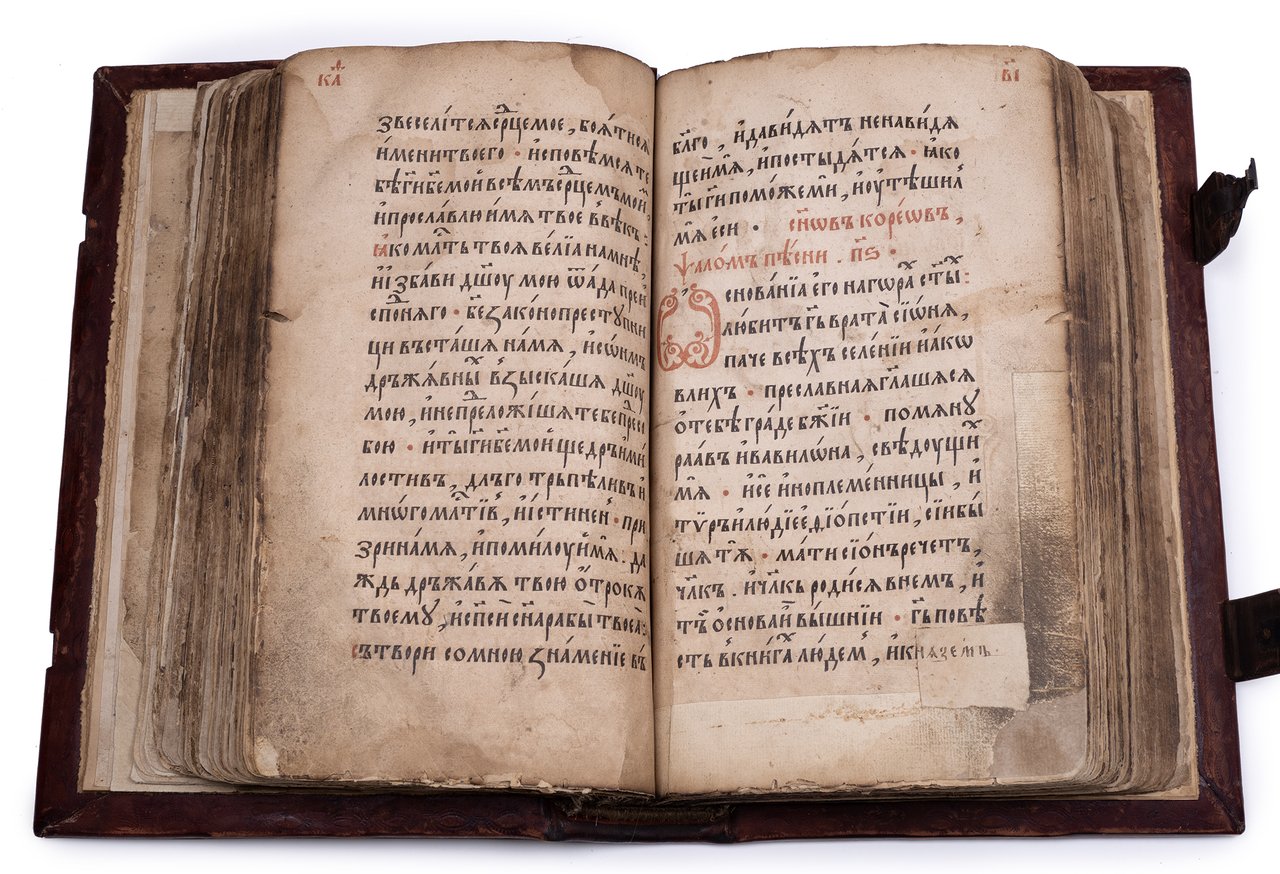 кл҃а
звесели́тсѧ ср҃цемое , боѧ́тисѧ
и҆́менитвоего · и҆сповѣ́мсѧте
бѣ г҃и бе҃мо́й всѣ́мъ ср҃цемъмои́,
и҆просла́влю и҆́мѧ твоѐ ввѣ́къ :
ꙗ҆комл҃ть твоѧ̀ ве́лїѧнамнѣ̀ ,
и҆и҆зба́ви дш҃оу мою̀ ѿа́да преи
спо́днѧго · беꙁако́нопресту́пни
ци въста́шѧ на́мѧ , и҆со́нмъ
дръжа́вны вꙁыска́шѧ дш҃оу
мою̀, и҆непреложи́шѧ тебепресо
бою · и҆ты̀г҃и бе҃мо́й ще́дръи҆ми
лостивъ, длъ́го тръпѣли́въ и҆
мнѡ́гомл҃тивъ, и҆и҆́стиненъ · при
зринамѧ , и҆поми́лоуи҆мѧ . да
ждь дръжа́вѫ твою̀ о҆́трокꙋ
твоемꙋ, и҆сп҃сѝ сн҃арабы̀ твоеѧ̀ :
сътвори сомно́ю ꙁна́менїе въ
в҃і
бл҃го , и҆да́видѧтъ ненави́дѧ
щеи́мѧ , и҆постыдѧ́тсѧ · ꙗ҆́ко
ты̀ г҃и помо́жеми , и҆оу҆тѣ́шил
мѧ̀ есѝ · сн҃ѡвъ коре́ѡвъ ,
ѱало́мъ пѣ́сни . п҃ѕ ·
Основа́нїѧ его̀ нагора́ ст҃ы :
лю́битъ г҃ь врата̀ сїѡ́нѧ ,
паче всѣ́хъ селе́нїи и҆а́кѡ
влихъ · преславнаѧ гл҃ашѧсѧ
о҆тебѣ̀ гра́де бж҃їи · помѧнꙋ̀
раа́въ и҆вавилѡ́на , свѣ́доущи
мѧ̀ · и҆сѐ и҆нопле́менницы , и҆
тѵ́ръ и҆лю́дїе еѳїо́пстїи , сїи́бы
шѧ тꙋ̀ · ма́ти сїо́нъ рече́тъ ,
чл҃къ . и҆чл҃къ роди́сѧ вне́мъ , и҆
то́й о҆снова́и вы́шнїи · г҃ь повѣ́
сть вкни́гахъ люде́м , и҆кнѧзе́мъ